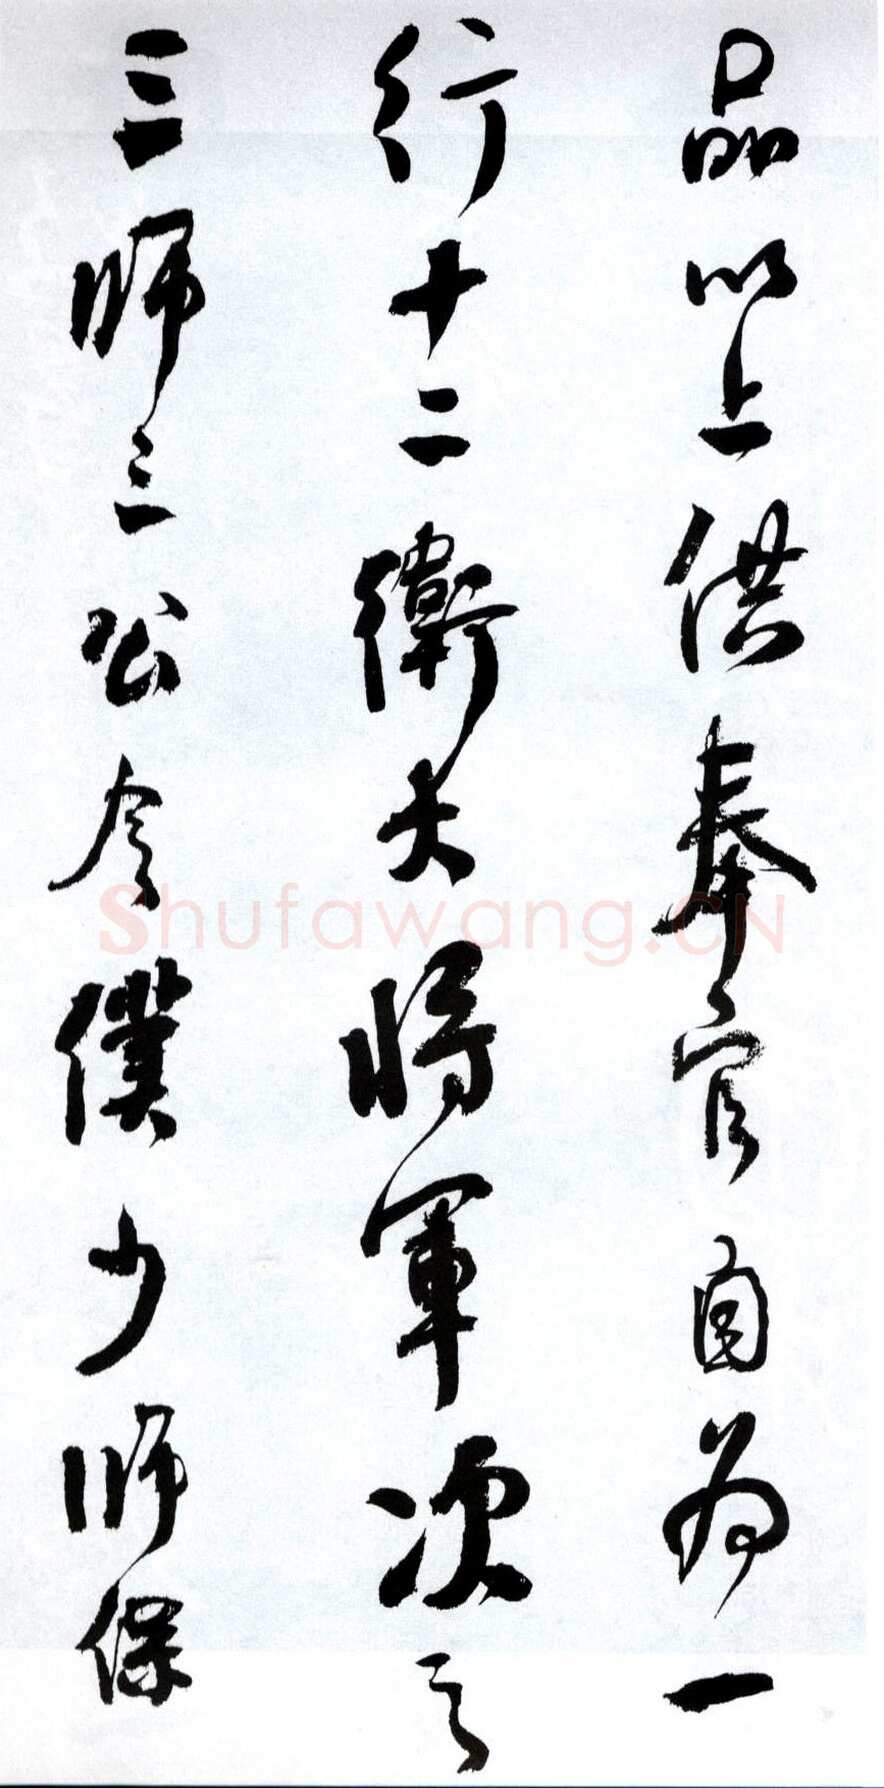 品以上供奉官自为一
行十二衛大将軍次之
三師三公令僕少師保
Shufawang.CN